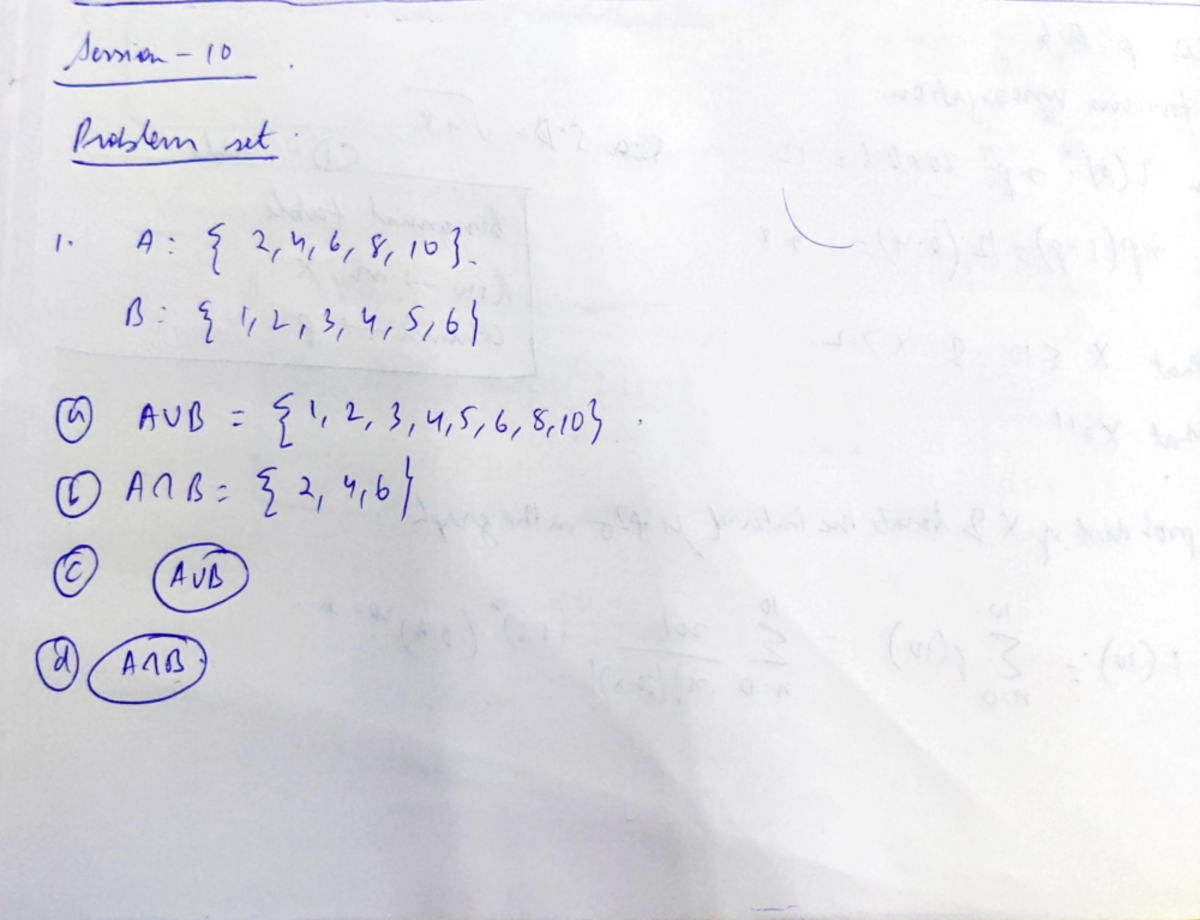 Session - 10
Problem set.
1. A: { 2, 4, 6, 8, 10}.
B: { 1, 2, 3, 4, 5, 6}
(a) A∪B = { 1, 2, 3, 4, 5, 6, 8, 10}
(b) A∩B = { 2, 4, 6}
(c) A∪B
(d) A∩B